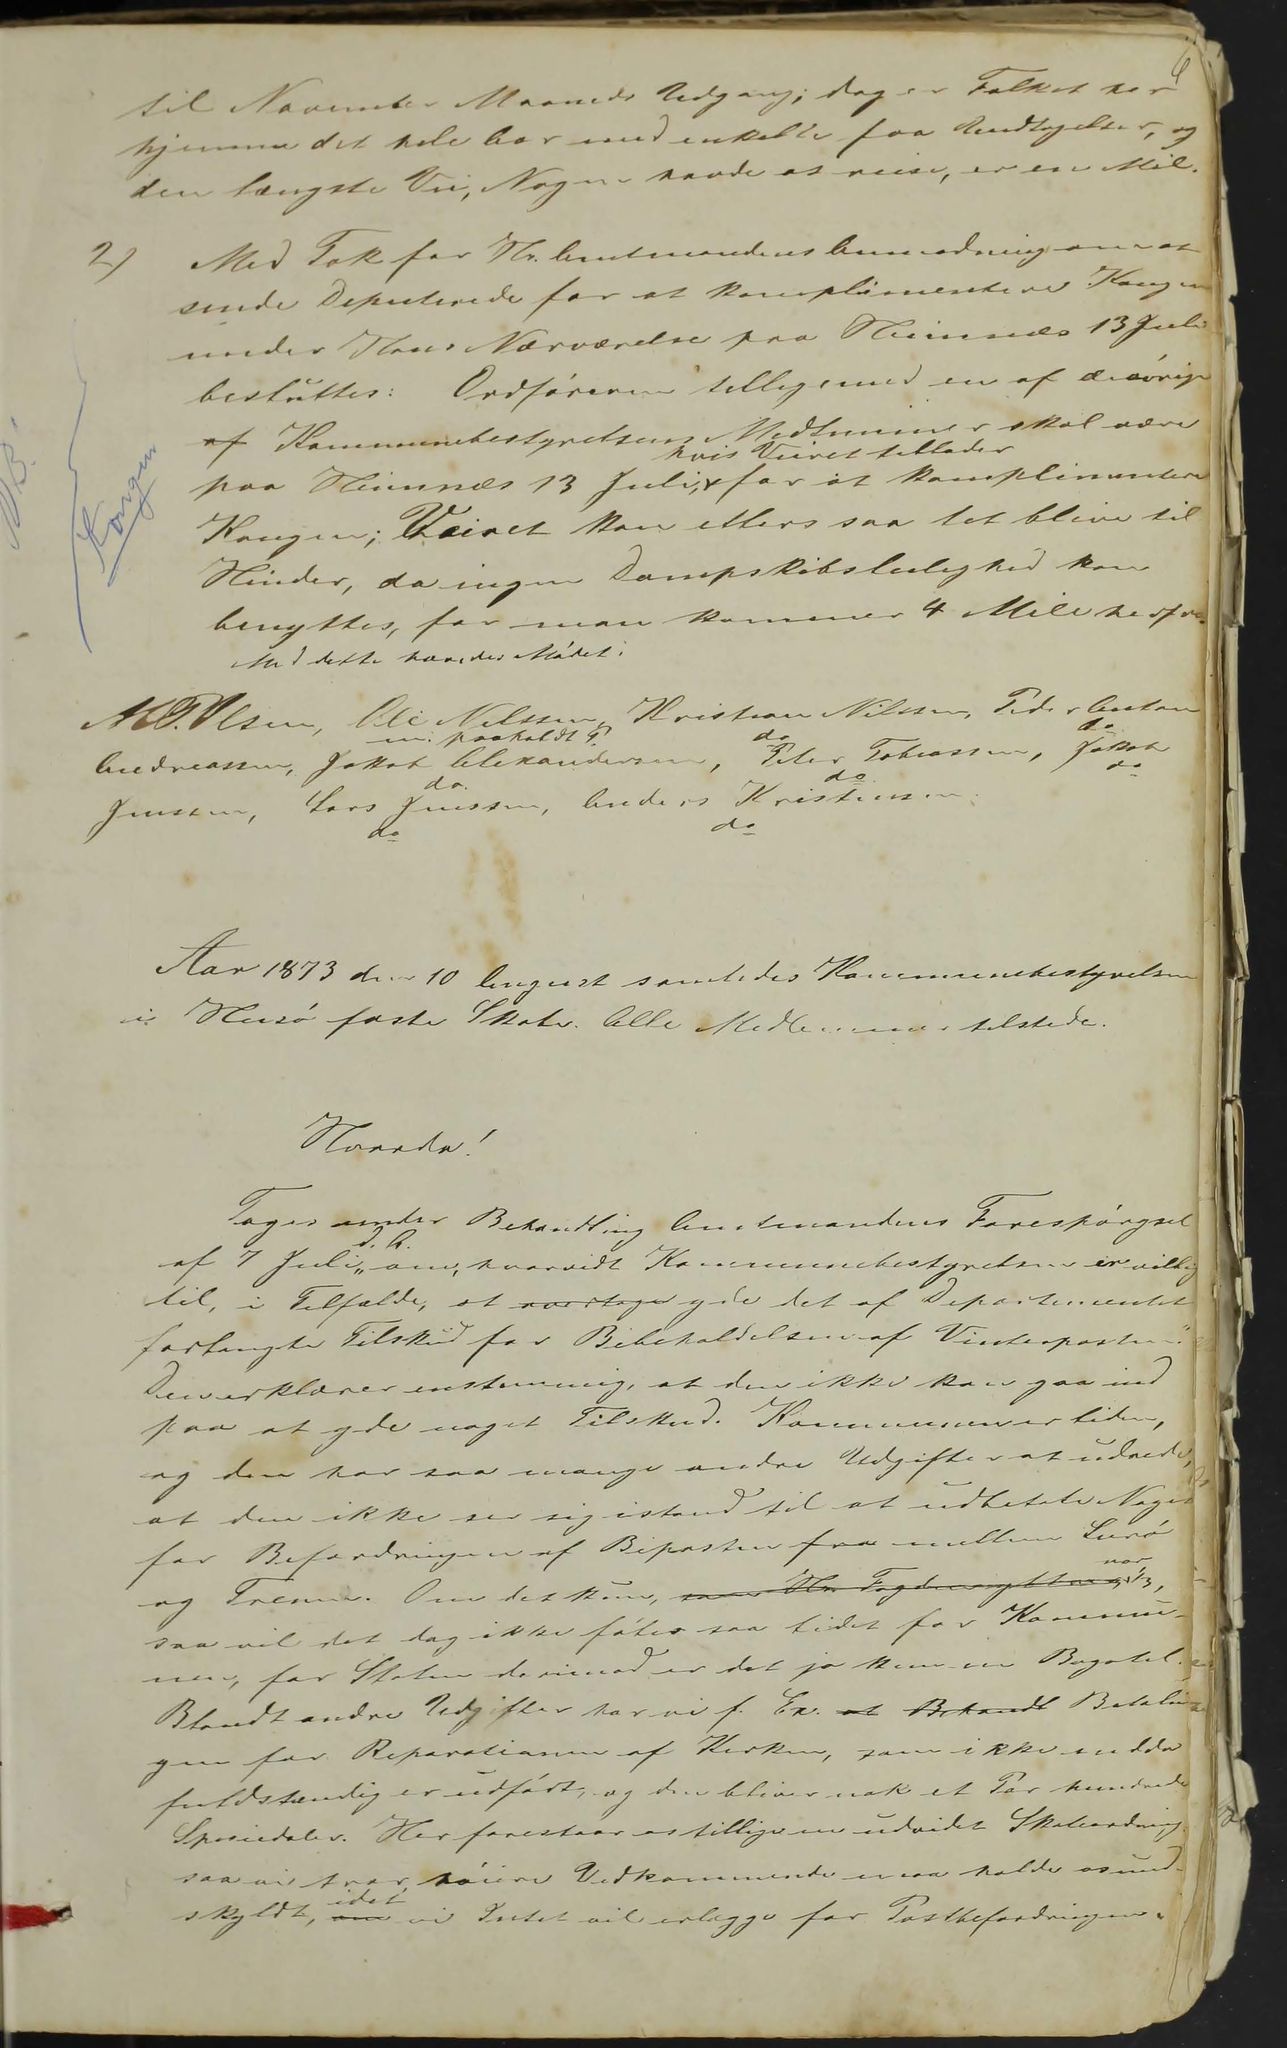 6
til November Maaneds Udgang; dog er Folket her
hjemme det hele Aar med enkelte faa Undtagelser, og
den længste Vei, Nogen havde at reise, er en Mil.
2) Med Tak for Hr. Amtmandens Anmodning om at
sende Deputerede for at komplimentere Kongen
under Hans Nærværelse paa Hemnæs 13 Juli
besluttes: Ordføreren tilligemed en af de øvrige
af Kommunebestyrelsens Medlemmer skal være
hvis Veiret tillader
paa Hemnæs 13 Juli, for at komplimentere
Kongen; Veiret kan ellers saa let blive til
Hinder, da ingen Dampskibsleilighed kan
benyttes, før man kommer 4 Mile herfra.
Med dette hævedes Mødet.
NB.
Kongen
Olsen, Ole Nilssen, Kristian Nilssen, Peder Anton
m. paaholdt P. do do
Andreassen, Jakob Alexandersen, Peter Tobiassen, Jakob
do do do
Jenssen, Lars Jenssen, Anders Kristensen.
do do
Aar 1873 den 10 August samledes Kommunebestyrelsen
i Husø faste Skole. Alle Medlemmer tilstede.
Hvorda!
Toges under Behandling Amtmandens Forespørgsel
d. A.
af 7 Juli „om, hvorvidt Kommunebestyrelsen er villig
til, i Tilfælde, at overtage yde det af Departementet
forlangte Tilskud for Bibeholdelsen af Vinterposten."
Den erklærer enstemmig, at den ikke kan gaa ind
paa at yde noget Tilskud. Kommunen er liden,
og den har saa mange andre Udgifter at udrede,
at den ikke ser sig istand til at udbetale Noget
for Befordringen af Biposten fra mellem Lurø
og Træna. Om det kun, som Hr. Fogden
var 1/3,
saa vil det dog ikke føles saa lidet for Kommu-
nen, for Staten derimod er det jo kun en Bagatel.
Blandt andre Udgifter har vi f. Ex. at Behandl Betalin
gen for Reparationen af Kirken, som ikke endda
fuldstændig er udført, og den bliver nok et Par hundrede
Speciedaler. Her forestaar os tillige en udvidet Skoleordning
saa vi tror, høiere Vedkommende maa holde os und-
idet
skyldt, om vi Intet vil erlægge for Postbefordringen.